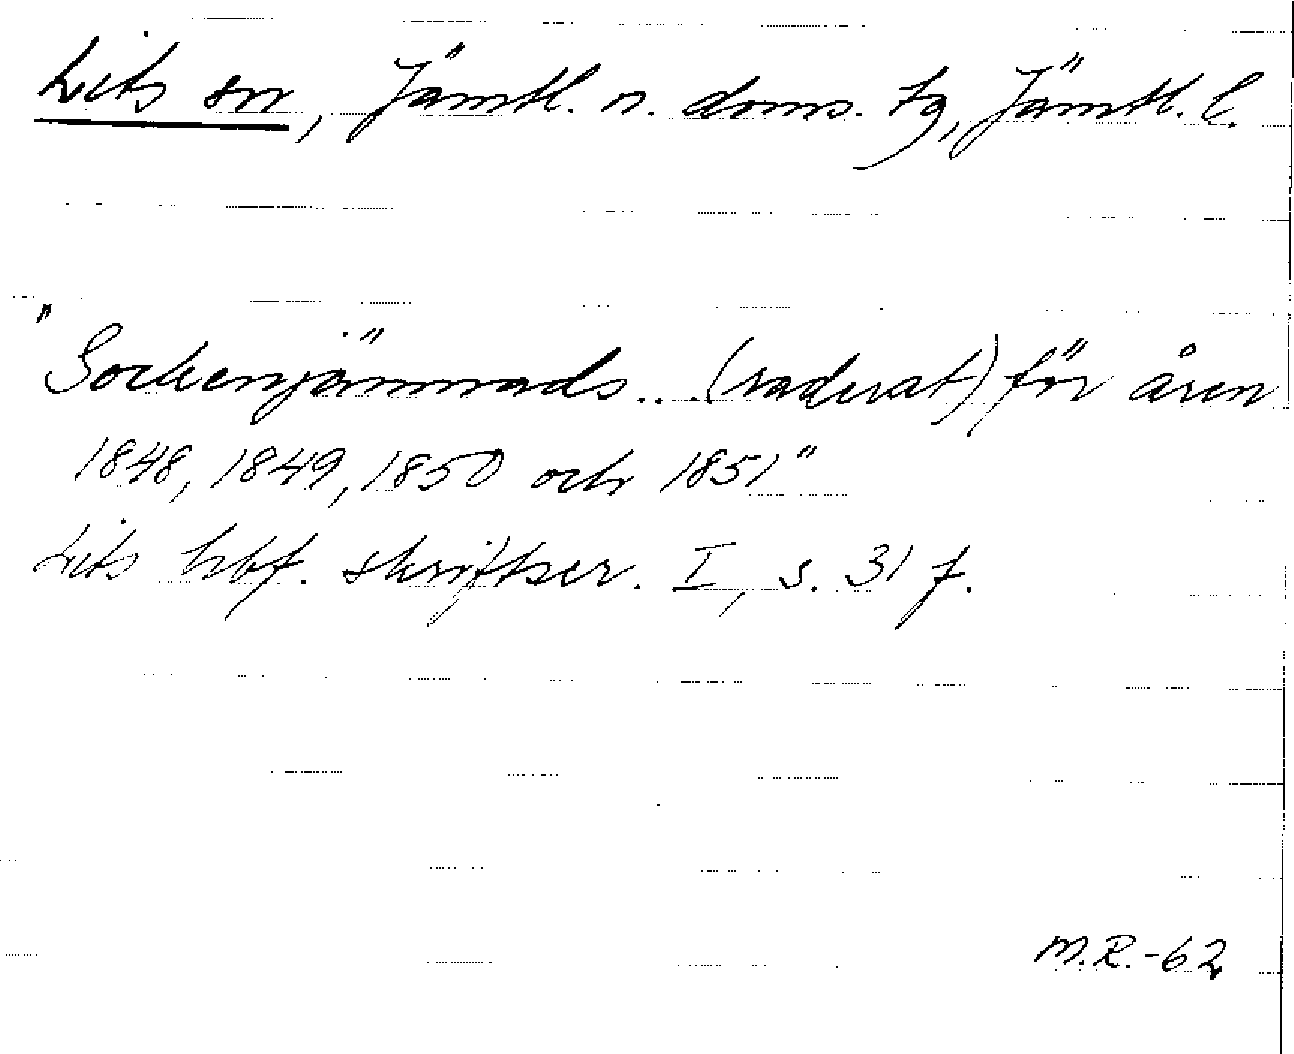 Lits sn, Jämtl. n. doms. tg, Jämtl. l.
"Sockenjämnads... (raderat) för åren
1848, 1849, 1850 och 1851"
Lits hbf. skriftser. I, s. 31 f.
M.R.-62